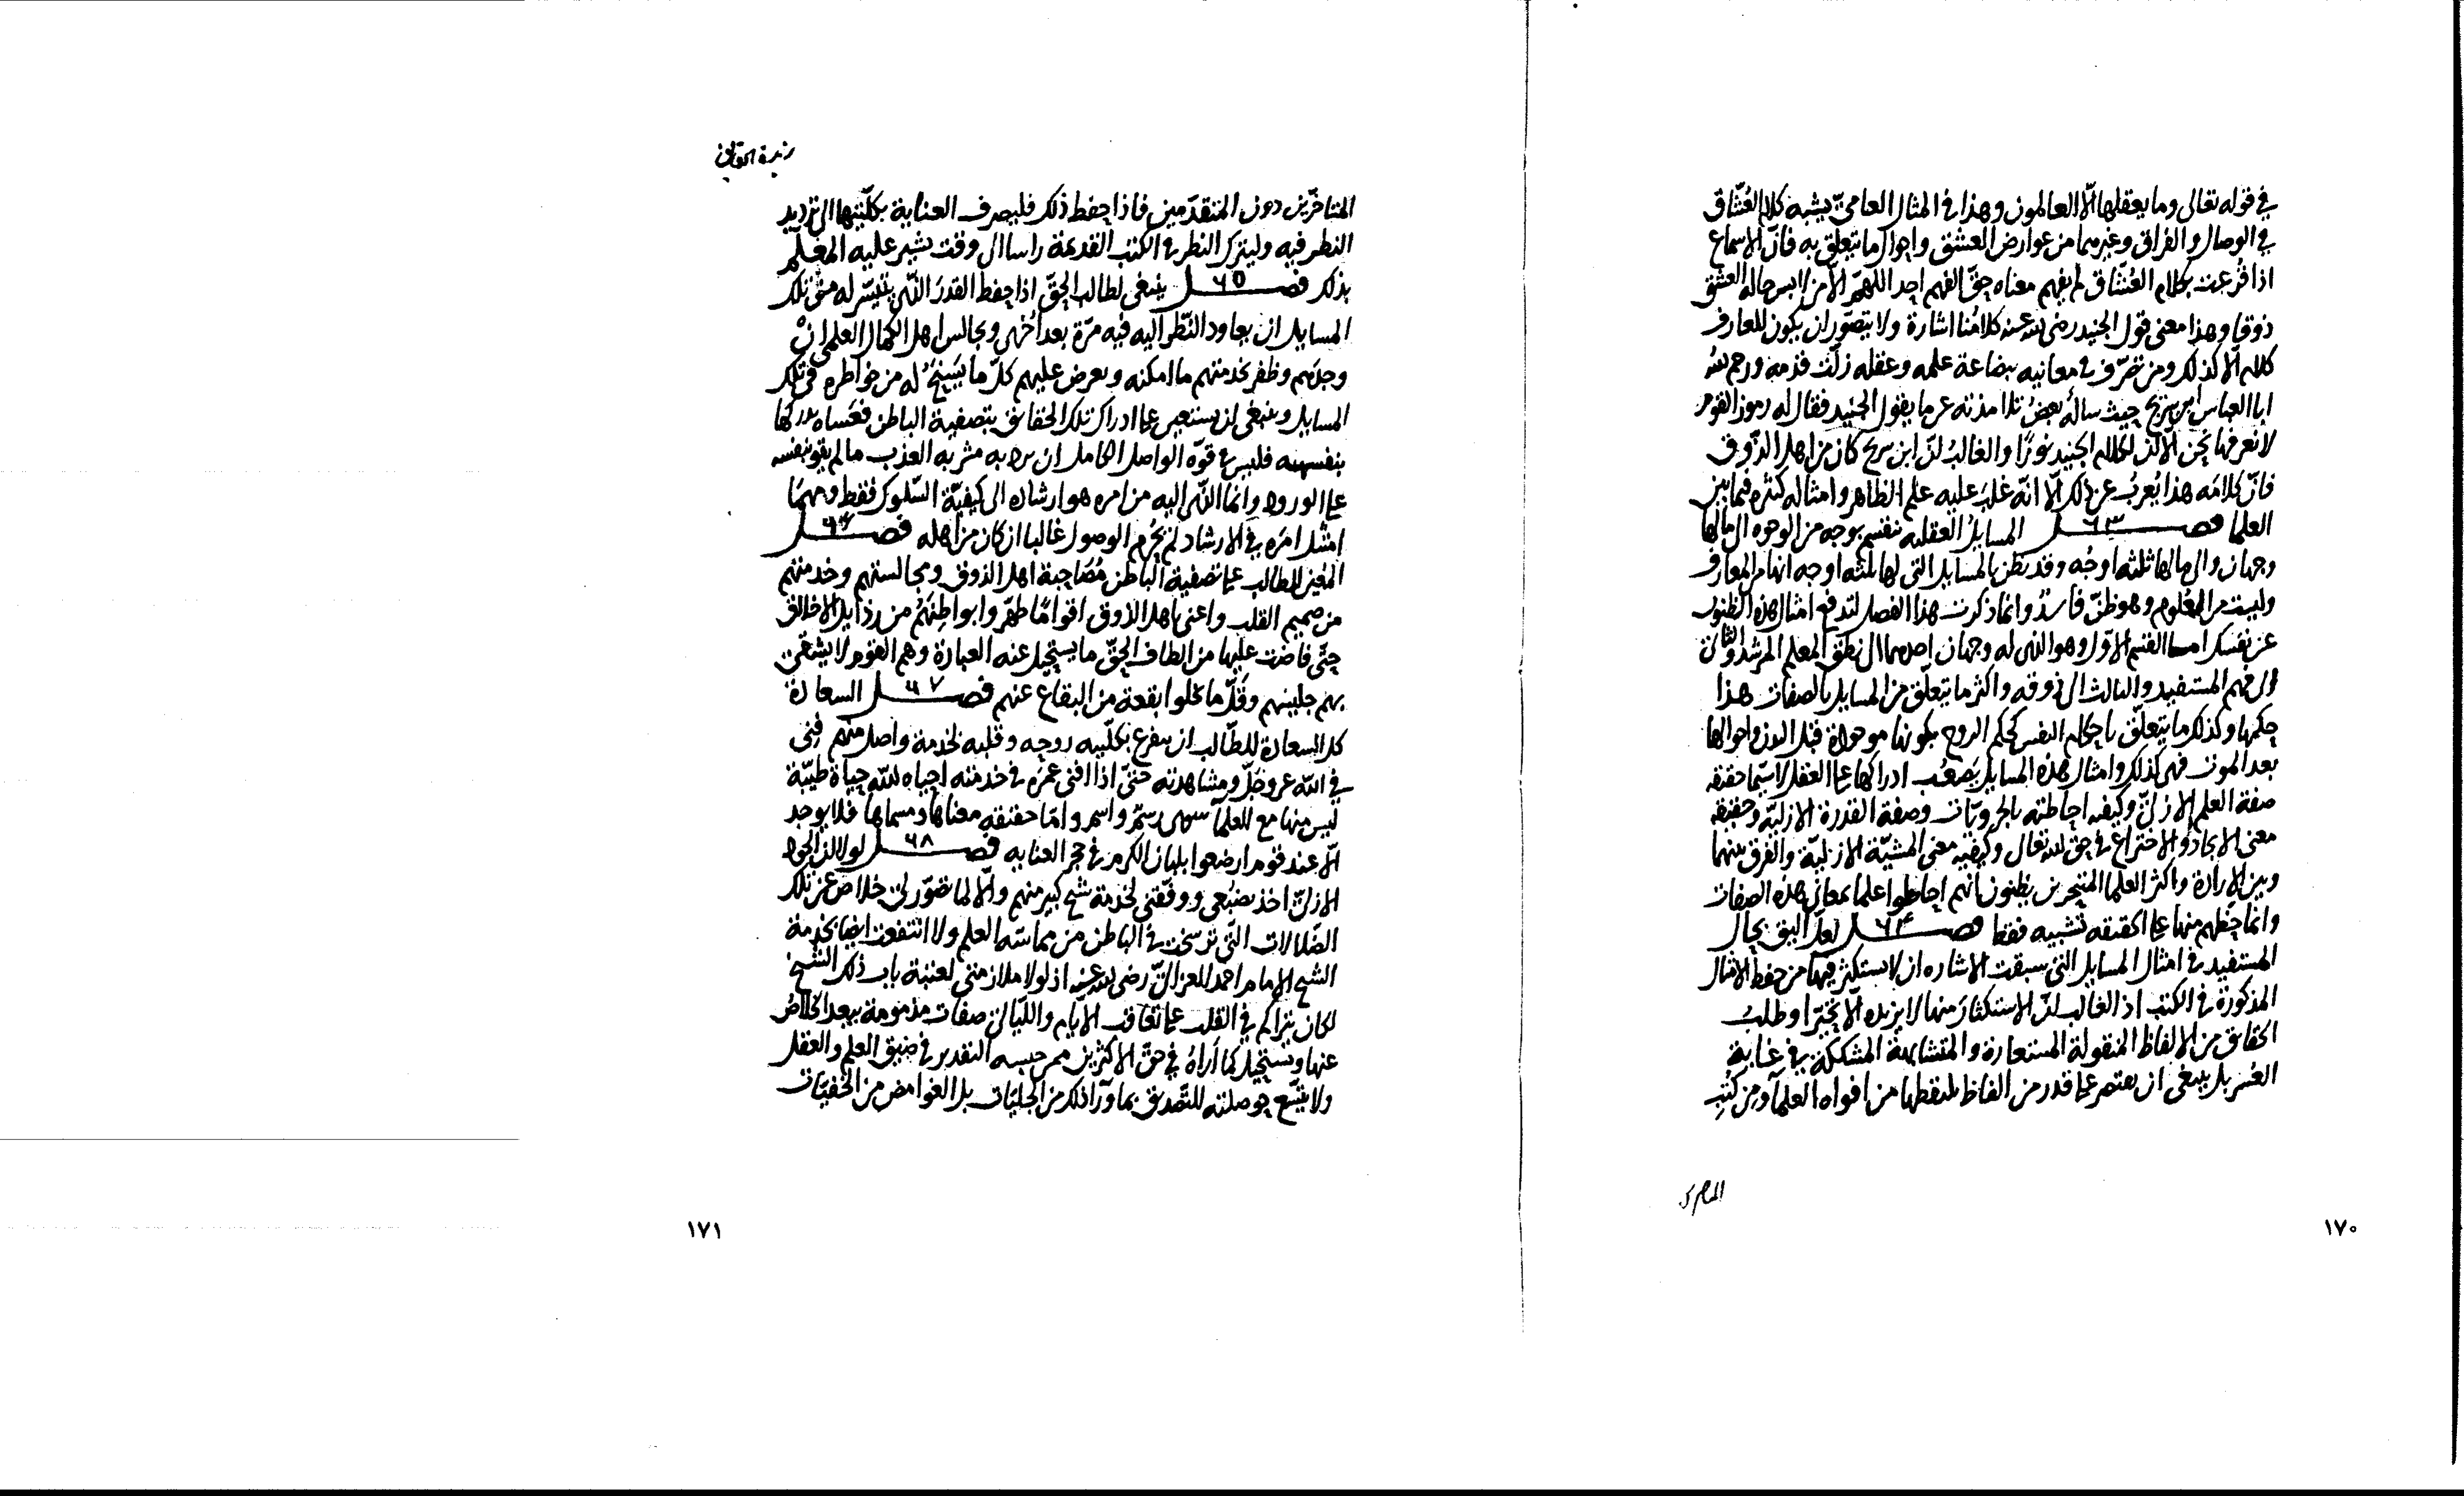 في قوله تعالى وما يعقلها الّا العالمون وهذا في المثال العاميّ يشبه كلام العُشّاق
في الوصال والفراق وغيرهما من عوارض العشق واحوال ما يتعلق به فانّ الاسماع
اذا قُرعت بكلام العُشّاق لم يفهم معناه حقّ الفهم احد اللهمّ الّا من لابس حاله العشق
ذوقا وهذا معنى قول الجنيد رضى الله عنه كلامُنا اشارة ولا يتصوّر ان يكون للعارف
كلام الّا كذلك ومن تصرّف في معانيه ببضاعة علمه وعقله زلّت قدمه ورحم الله
ابا العباس ابن سريج حيث سأله بعض تلامذته عن ما يقول الجنيد فقال له رموز القوم
لا نعرفها نحن الّا انّ لكلام الجنيد نورًا والغالب انّ ابن سريج كان من اهل الذّوق
فانّ كلامَه هذا يُعرِبُ عن ذلك الّا انّه غلبَ عليه علم الظاهر وامثاله كثره فيما بين
العلما فصل ٦٣ المسايل العقليه تنقسم بوجه من الوجوه الى ما لها
وجهان والى ما لها ثلثه اوجُه وقد يظن بالمسايل التى لها ثلثه اوجه انها من المعارف
وليست من العُلوم وهو ظنّ فاسدٌ وانما ذكرت هذا الفصل لتدفع امثال هذه الظنون
عن نفسك امـا القسم الاوّل وهو الذى له وجهان احدهما الى نطق المعلم المرشد والثانى
الى فهم المستفيد والثالث الى ذوقه واكثر ما يتعلّق من المسايل بالصفات هذا
حكمها وكذلك ما يتعلّق باحكام النفس كحكم الروح بكونها موجودة قبل البدن واحوالها
بعد الموت فهى كذلك وامثال هذه المسايل يَصعُب ادراكها على العقل لا سيّما حقيقه
صفة العلم الازلىّ وكيفيه احاطته بالجزويّات وصفة القدرة الازليّه وحقيقه
معنى الايجاد والاختراع في حق الله تعالى وكيفيه معنى المشيّة الازليّة والفرق بينهما
وبين الارادة واكثر العلما المتبحرين يظنون انهم احاطوا علما بمعانى هذه الصفات
وانما حظّهم منها على الحقيقه تشبيه فقط فصل ٦٤ لعلّ اليق بحال
المستفيد في امثال المسايل التى سبقت الاشاره ان لا يستكثر فيها من حفظ الامثال
المذكورة في الكتب اذ الغالب انّ الاستكثارَ منها لا يزيده الّا تحيّرا وطلبُ
الحقايق من الالفاظ المنقولة المستعارة والمتشابهة المشككة في غاية
العُسر بل ينبغى ان يقتصر على قدر من الفاظ يلتقطها من افواه العلمآ ومن كُتُب
١٧٠
زبدة الحقايق
المتاخّرين دون المتقدّمين فاذا حفظ ذلك فليصرف العناية بكلّيتها الى ترديد
النظر فيه وليترك النظر في الكتب القديمة راسا الى وقت يشير عليه المعلّم
بذلك فصل ٦٥ ينبغى لطالب الحقّ اذا حفظ القدرَ الّذى يتيسّر له من تلك
المسايل ان يعاود النّظر اليه فيه مرّة بعد اُخرى ويجالس اهل الكمال العلمى انْ
وجدَهم وظفر بخدمتهم ما امكنه ويعرض عليهم كلّ ما يَسنحُ له من خواطره في تلك
المسايل وينبغى ان يستعين على ادراك تلك الحقائق بتصفية الباطن فعَساه يدركها
بنفسه فليس في قوّه الواصل الكامل ان يرد به مشربه العذب ما لم يقو بنفسه
على الورود وانما الّذى اليه من امره هو ارشاده الى كيفيّة السّلوك فقط ومهما
امتثل امرَه في الارشاد لم يُحرَم الوصول غالبا ان كان من اهله فصل ٦٦
المُعين للطالب على تصفية الباطن مُصَاحبة اهل الذوق ومجالستهم وخدمتهم
من صميم القلب واعنى باهل الذوق اقوامًا طهّروا بواطِنَهُم من رذايل الاخلاق
حتّى فاضت عليها من الطاف الحقّ ما يستحيل عنه العبارة وهم القوم لا يشقى
بهم جليسهم وقَلّ ما تخلوا بقعة من البقاع عنهم فصل ٦٧ السعادة
كل السعادة للطّالب ان يتفرغ بكلّيته روحِه وقلبه لخدمة واصل منهم فِنى
في الله عز وجلّ ومشاهدته حتىّ اذا افنى عمرَه في خدمته احياه الله حياة طيّبة
ليس منها مع العلمآ سوى رسمٍ واسم وامّا حقيقه معناها ومسماها فلا يوجد
الّا عند قوم ارضعوا بلبان الكرم في حجر العنايه فصل ٦٨ لولا ان الجود
الازلىّ اخذ بضَبُعى ووفّقنى لخدمة شيخ كبير منهم والّا لما تصوّر لى خلاص عن تلك
الضّلالات التّى ترسّخت في الباطن من ممارسة العلم ولا انتفعت ايضا بخدمة
الشيخ الامام احمد الغزالىّ رضى الله عنه اذ لولا ملازمتى لعتبة باب ذلك الشيخ
لكان يتراكم في القلب على تعاقب الايّام واللّيالى صفات مذمومة يبعد الخلاصُ
عنها ويستحيل كما اَراهُ في حقّ الاكثرين ممن حبسه التقدير في ضيق العلم والعقل
ولا يتّسع حوصلته للتّصديق بما ورآ ذلك من الجليّات بل الغوامض من الخفيّات
١٧١